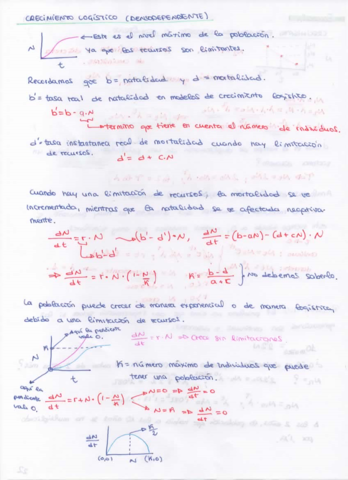 CRECIMIENTO LOGÍSTICO (DENSODEPENDIENTE)
Este es el nivel máximo de la población.
N
ya que los recursos son limitantes.
t
Recordamos que b = natalidad y d = mortalidad.
b' = tasa real de natalidad en modelos de crecimiento logístico.
b' = b - a.N
término que tiene en cuenta el número de individuos.
d' = tasa instantánea real de mortalidad cuando hay limitación
de recursos.
d' = d + c.N
Cuando hay una limitación de recursos, la mortalidad se ve
incrementada, mientras que la natalidad se ve afectada negativa-
mente.
dN/dt = r · N → (b' - d') · N, dN/dt = (b - aN) - (d + cN) · N
b' - d'
⇒ dN/dt = r · N · (1 - N/K) K = (b - d)/(a + c) } No debemos saberlo.
La población puede crecer de manera exponencial o de manera logística,
debido a una limitación de recursos.
Aquí la pendiente
vale 0.
K
dN/dt = r · N ⇒ crece sin limitaciones
N
K = número máximo de individuos que puede
tener una población.
t
aquí la
pendiente
vale 0.
dN/dt = r · N · (1 - N/K)
N = 0 ⇒ dN/dt = 0
N = K ⇒ dN/dt = 0
dN/dt
K/2
(0,0) N (K,0)